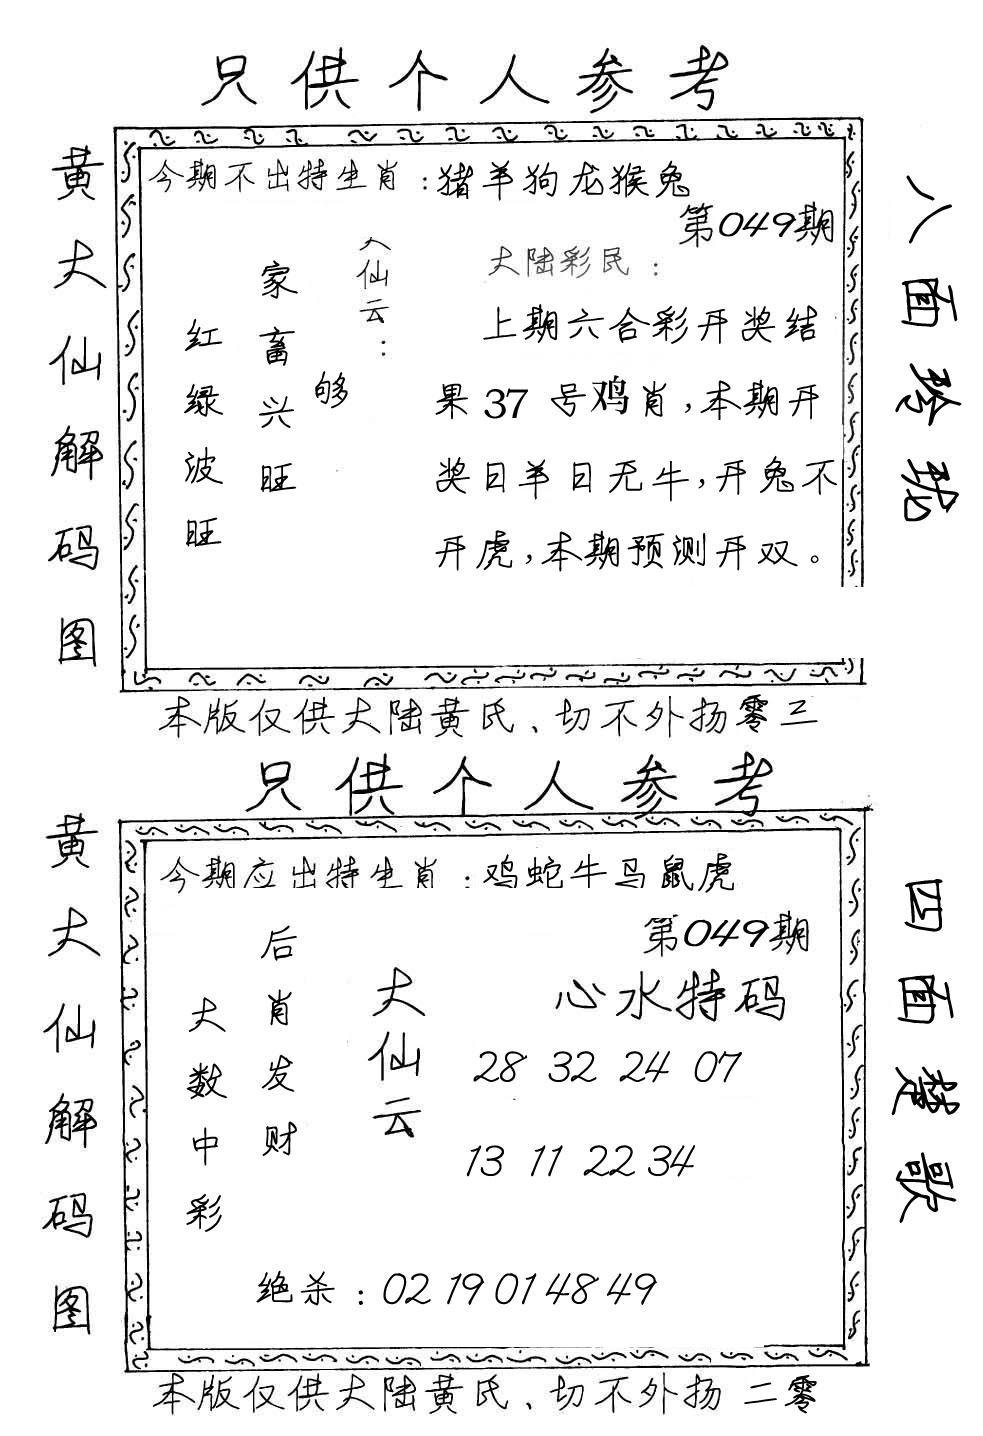 只供个人参考
黄大仙解码图
今期不出特生肖：猪羊狗龙猴兔
第049期
八面玲珑
大仙云：
够
家畜兴旺
红绿波旺
大陆彩民：
上期六合彩开奖结
果37号鸡肖，本期开
奖日羊日无牛，开兔不
开虎，本期预测开双。
本版仅供大陆黄氏、切不外扬零三
只供个人参考
黄大仙解码图
今期应出特生肖：鸡蛇牛马鼠虎
第049期
四面楚歌
大仙云
后肖发财
大数中彩
心水特码
28 32 24 07
13 11 22 34
绝杀：02 19 01 48 49
本版仅供大陆黄氏、切不外扬 二零